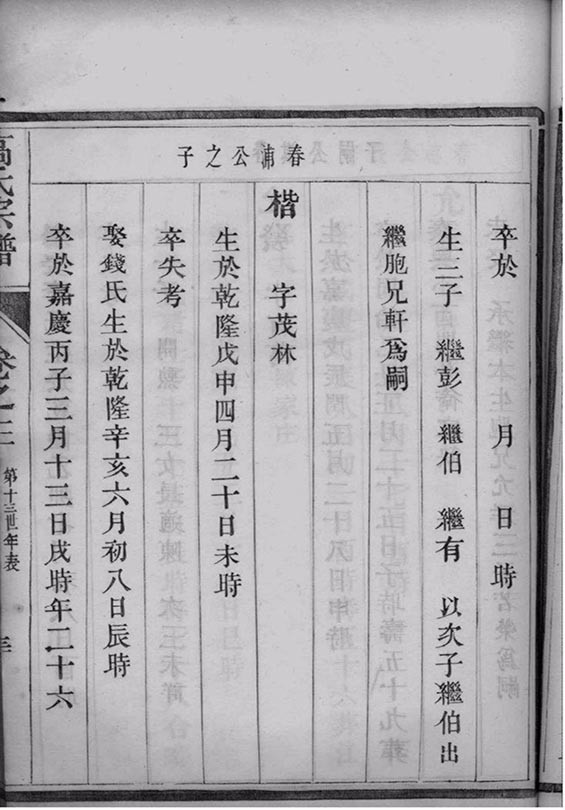 春浦公之子
卒於 月 日 時
生三子 繼彭 繼伯 繼有 以次子繼伯出
繼胞兄軒爲嗣
楷 字茂林
生於乾隆戊申四月二十日未時
卒失考
娶錢氏生於乾隆辛亥六月初八日辰時
卒於嘉慶丙子三月十三日戌時年二十六
高氏宗譜
卷之二
第十三世年表